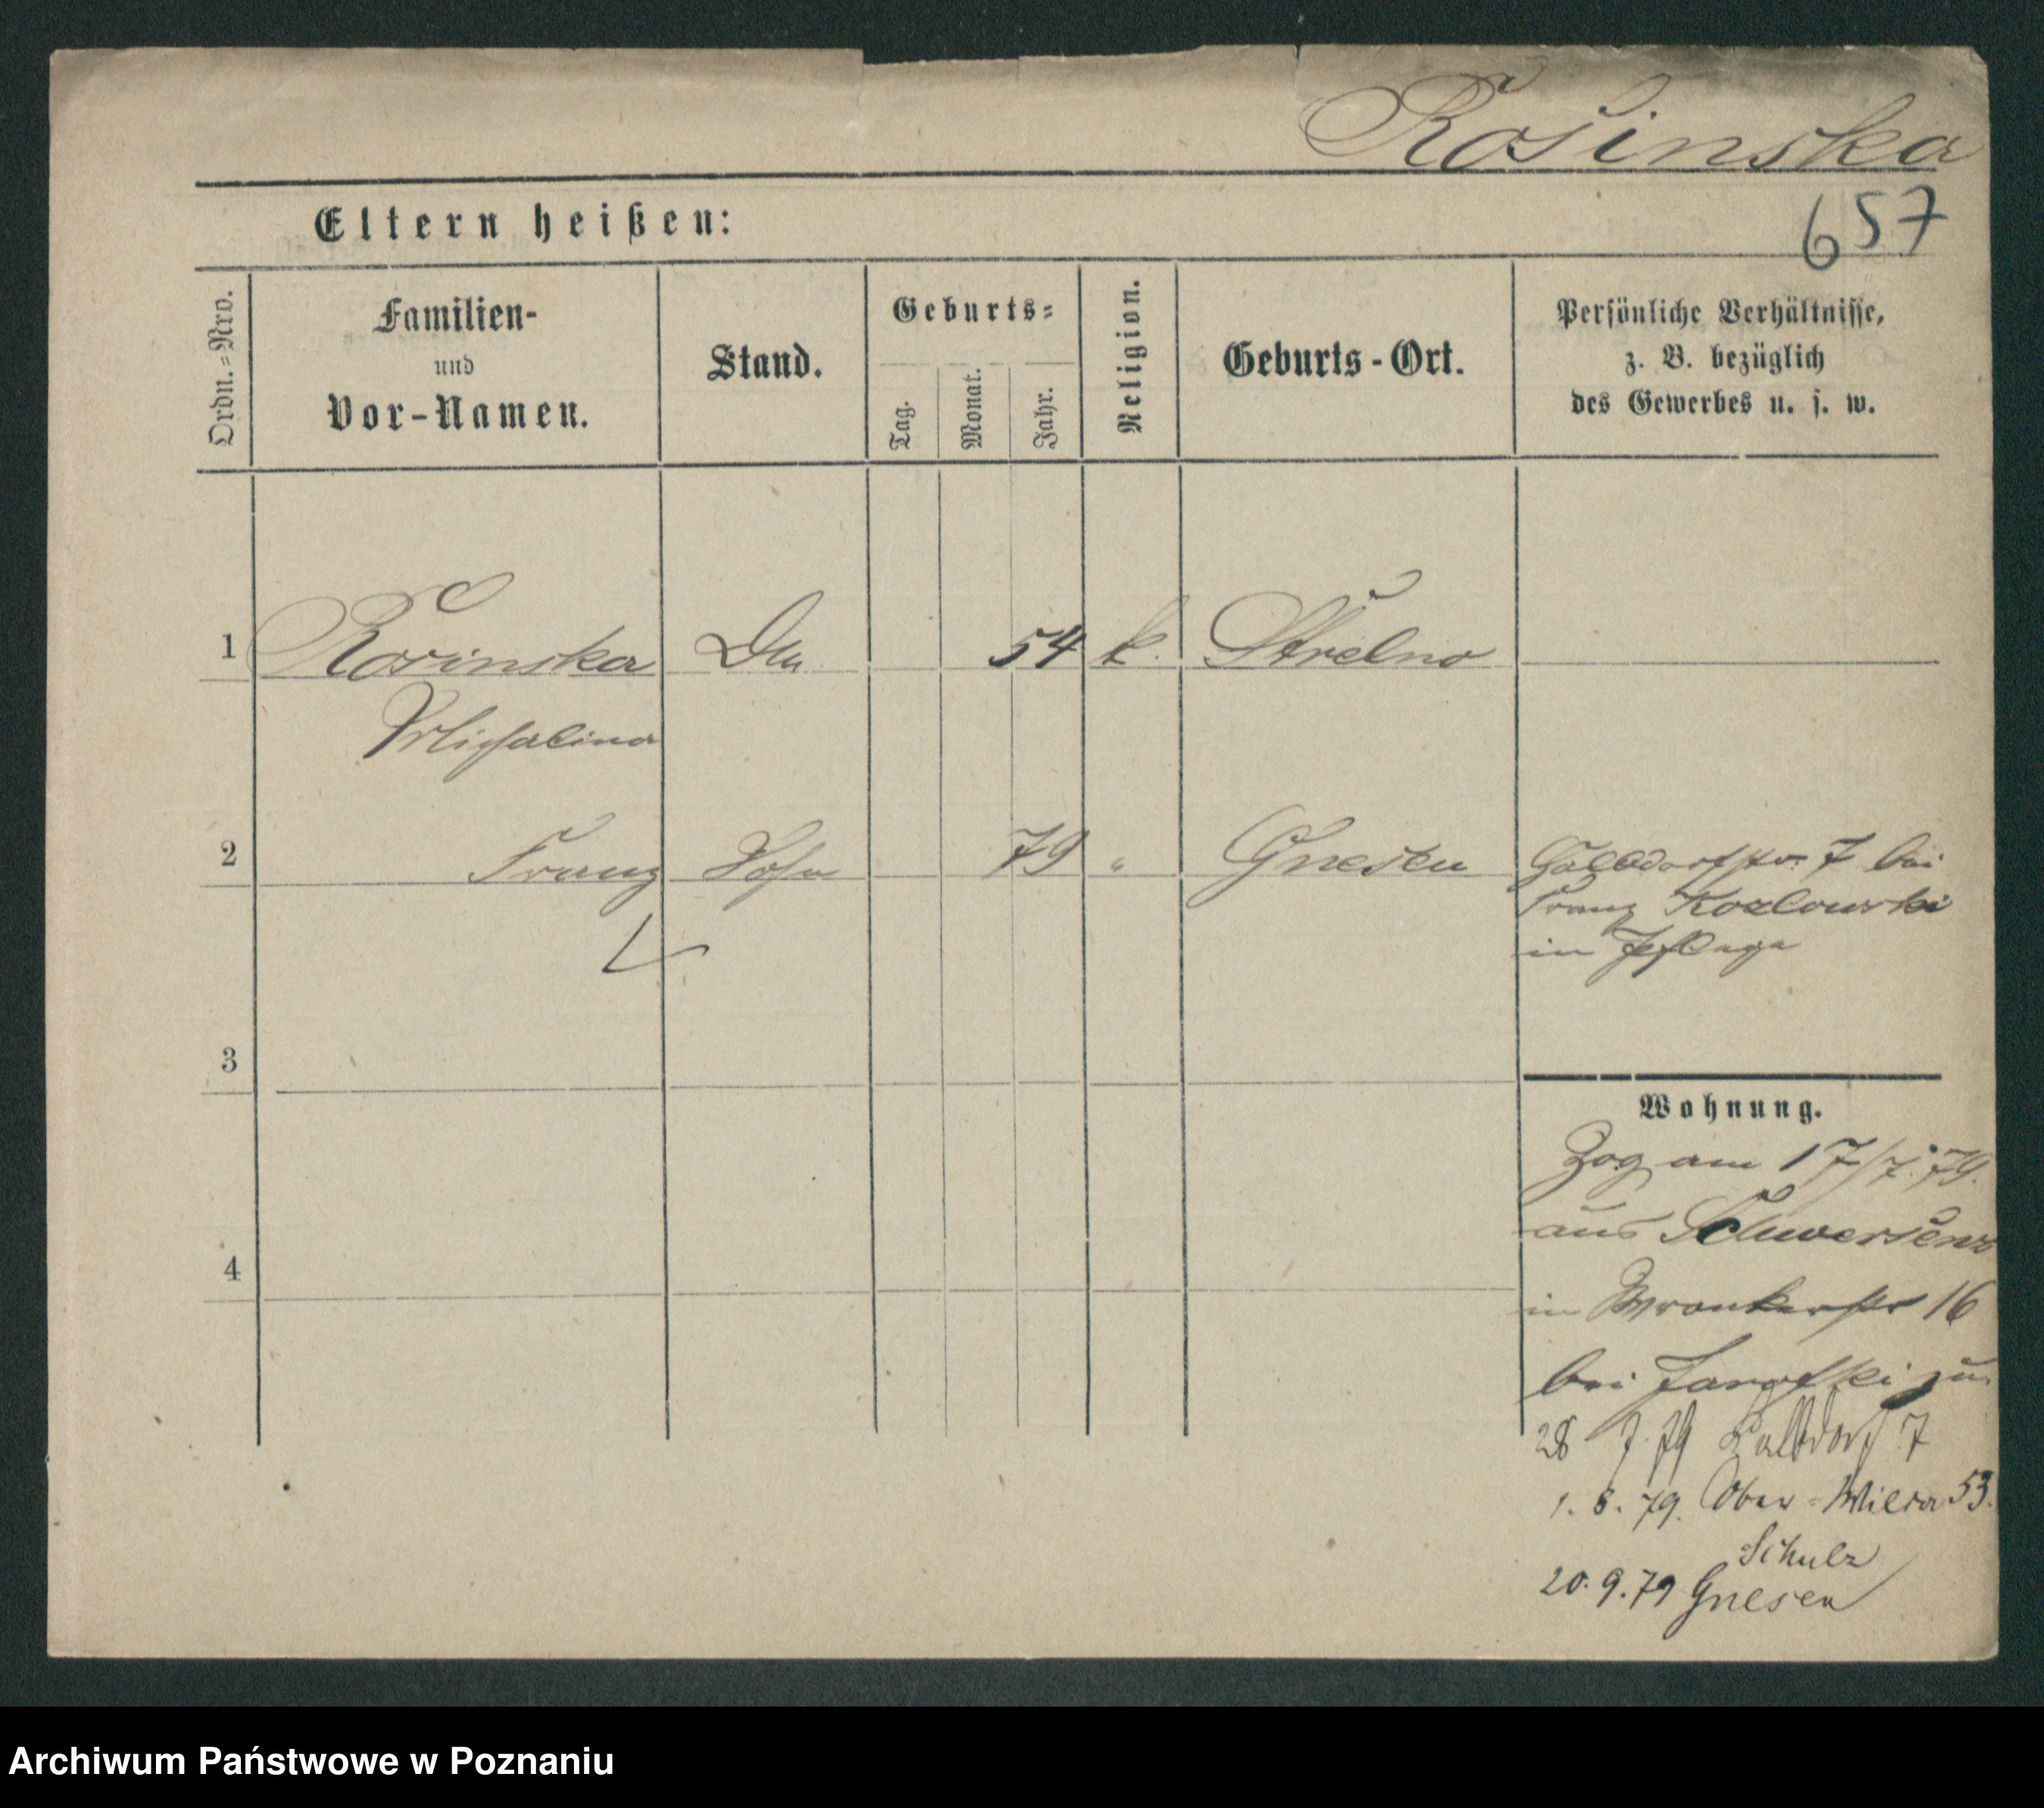 Rosinska
657
Eltern heißen:
Ordn.=Nro.
Familien-
und
Vor-Namen.
Stand.
Geburts=
Tag.
Monat.
Jahr.
Religion.
Geburts-Ort.
Persönliche Verhältnisse,
z. B. bezüglich
des Gewerbes u. s. w.
1 Rosinska 54 k. Strelno
Michalina
2 Franz Sohn 79 " Gnesen
Halbdorfstr. 7 bei
Franz Kozlowski
in Pflege
3
Wohnung.
Zog am 17/7. 79.
aus Schwersenz
4
in Wronkerstr 16
bei zu.
28 7. 79 Halbdorf 7
1. 8. 79. Ober-Wilda 53.
Schulz
20. 9. 79 Gnesen
Archiwum Państwowe w Poznaniu